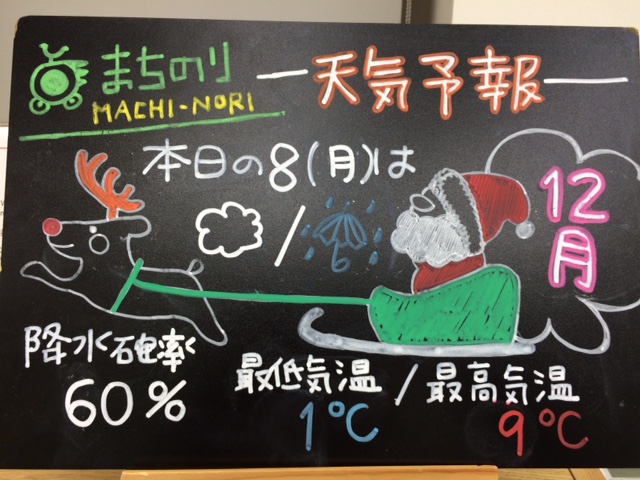 まちのり
MACHI-NORI
天気予報
本日の8(月)は
12
月
降水確率
60%
最低気温/最高気温
1℃ 9℃